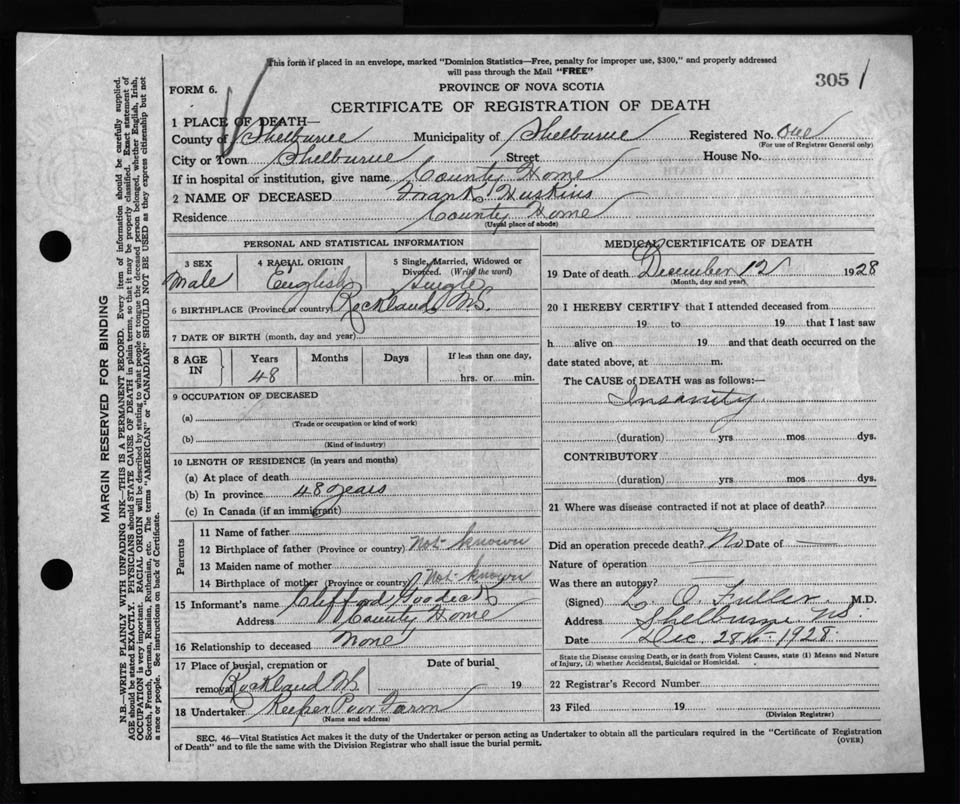 This form if placed in an envelope, marked "Dominion Statistics—Free, penalty for improper use, $300," and properly addressed
will pass through the Mail "FREE"
305 1
FORM 6.
PROVINCE OF NOVA SCOTIA
CERTIFICATE OF REGISTRATION OF DEATH
1 PLACE OF DEATH—
County of Shelburne Municipality of Shelburne Registered No. One
(For use of Registrar General only)
City or Town Shelburne Street House No.
If in hospital or institution, give name County Home
2 NAME OF DECEASED Frank Huskins
Residence County Home
(Usual place of abode)
PERSONAL AND STATISTICAL INFORMATION
3 SEX 4 RACIAL ORIGIN 5 Single, Married, Widowed or
Divorced. (Write the word)
Male English Single
6 BIRTHPLACE (Province or country) Rockland NS.
7 DATE OF BIRTH (month, day and year)
8 AGE IN Years Months Days If less than one day,
48 hrs. or min.
9 OCCUPATION OF DECEASED
(a)
(Trade or occupation or kind of work)
(b)
(Kind of industry)
10 LENGTH OF RESIDENCE (in years and months)
(a) At place of death
(b) In province 48 years
(c) In Canada (if an immigrant)
Parents
11 Name of father
12 Birthplace of father (Province or country) Not known
13 Maiden name of mother
14 Birthplace of mother (Province or country) Not known
15 Informant's name Clifford
Address County Home
16 Relationship to deceased None
17 Place of burial, cremation or Date of burial
removal Rockland NS 19
18 Undertaker Keeper Poor Farm
(Name and address)
MEDICAL CERTIFICATE OF DEATH
19 Date of death December 12 1928
(Month, day and year)
20 I HEREBY CERTIFY that I attended deceased from
19 to 19 that I last saw
h alive on 19 and that death occurred on the
date stated above, at m.
The CAUSE of DEATH was as follows:—
Insanity
(duration) yrs mos dys.
CONTRIBUTORY
(duration) yrs mos dys.
21 Where was disease contracted if not at place of death?
Did an operation precede death? No Date of —
Nature of operation —
Was there an autopsy? —
(Signed) L. O. Fuller M.D.
Address Shelburne NS.
Date Dec. 28th 1928.
State the Disease causing Death, or in death from Violent Causes, state (1) Means and Nature
of Injury, (2) whether Accidental, Suicidal or Homicidal.
22 Registrar's Record Number
23 Filed 19
(Division Registrar)
SEC. 46—Vital Statistics Act makes it the duty of the Undertaker or person acting as Undertaker to obtain all the particulars required in the "Certificate of Registration
of Death" and to file the same with the Division Registrar who shall issue the burial permit.
(OVER)
MARGIN RESERVED FOR BINDING
N.B.—WRITE PLAINLY WITH UNFADING INK—THIS IS A PERMANENT RECORD. Every item of information should be carefully supplied.
AGE should be stated EXACTLY. PHYSICIANS should STATE CAUSE OF DEATH in plain terms, so that it may be properly classified. Exact statement of
OCCUPATION is very important. RACIAL ORIGIN will be described by stating to what people or tongue the deceased person belonged, whether English, Irish,
Scotch, French, German, Russian, Ruthenian, etc. The terms "AMERICAN" or "CANADIAN" SHOULD NOT BE USED as they express citizenship but not
a race or people. See instructions on back of Certificate.